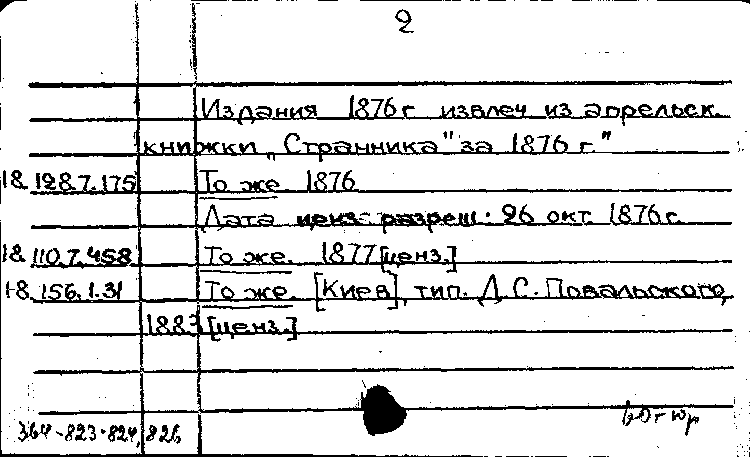 2
Издания 1876 г извлеч из апрельск.
книжки „Странника" за 1876 г."
18.128.7.175 То же 1876
Дата ценз. разреш. 26 окт 1876 г.
18.110.7.458 То же. 1877 [ценз.]
18.156.1.31 То же. [Киев], тип. Д. С. Повальского,
1883 [ценз.]
364-823-824, 826